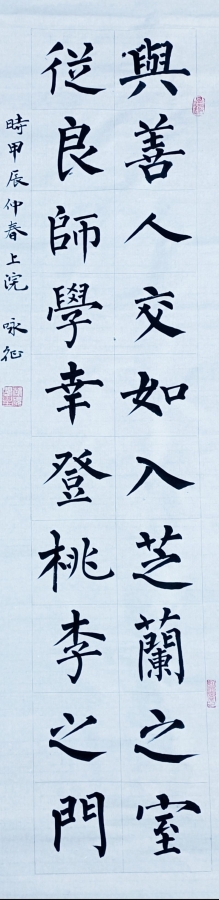 與善人交如入芝蘭之室
從良師學幸登桃李之門
時甲辰仲春上浣 咏征